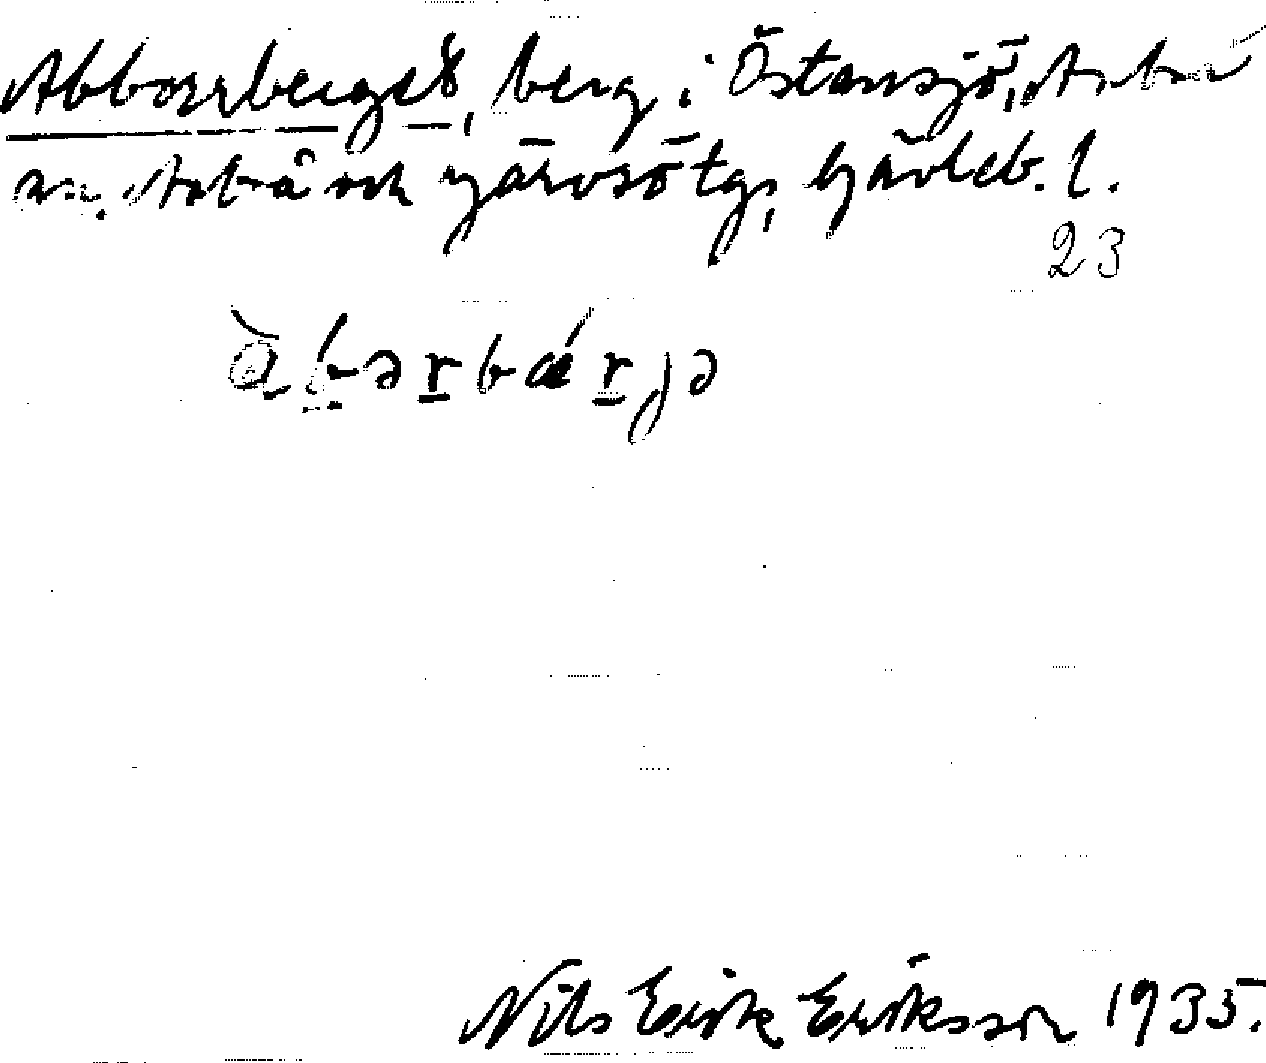 Abborrberget, berg i Östansjö, Arbrå
sn. Arbrå och Järvsö tg, Gävleb. l.
23
àbərbǽrjə
Nils Erik Eriksson 1935.